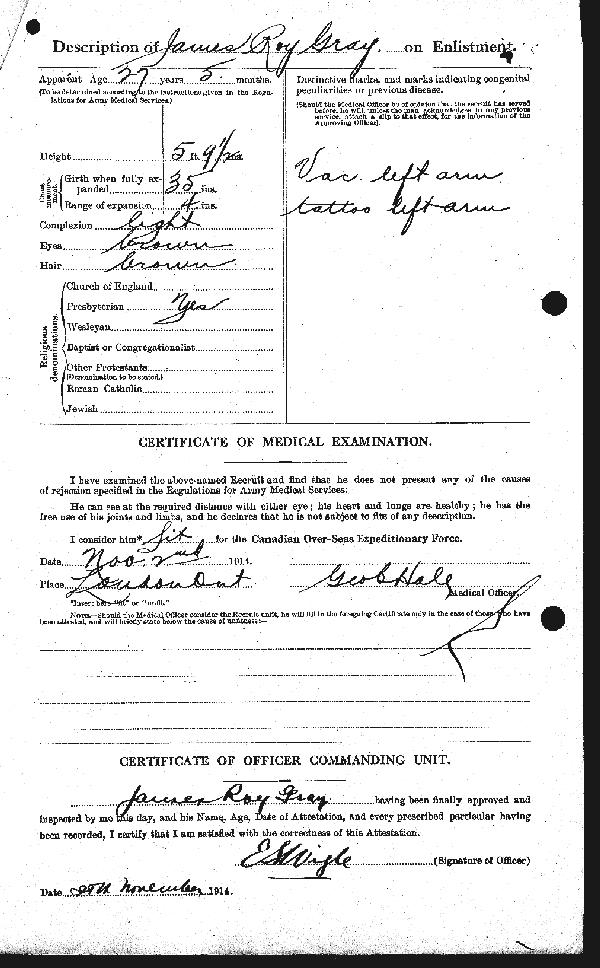 Description of James Roy Gray on Enlistment.
Apparent Age 27 years 5 months.
(To be determined according to the instructions given in the Regulations for Army Medical Services.)
Distinctive marks, and marks indicating congenital
peculiarities or previous disease.
(Should the Medical Officer be of opinion that the recruit has served
before, he will, unless the man acknowledges to any previous
service, attach a slip to that effect, for the information of the
Approving Officer).
Height 5 ft. 9½ ins.
Chest measurement. Girth when fully expanded 35 ins.
Range of expansion 4 ins.
Vac. left arm
tattoo left arm
Complexion light
Eyes brown
Hair brown
Religious denominations.
Church of England
Presbyterian Yes
Wesleyan
Baptist or Congregationalist
Other Protestants
(Denomination to be stated.)
Roman Catholic
Jewish
CERTIFICATE OF MEDICAL EXAMINATION.
I have examined the above-named Recruit and find that he does not present any of the causes
of rejection specified in the Regulations for Army Medical Services.
He can see at the required distance with either eye; his heart and lungs are healthy; he has the
free use of his joints and limbs, and he declares that he is not subject to fits of any description.
I consider him* fit for the Canadian Over-Seas Expeditionary Force.
Date Nov. 2nd 1914.
Place London Ont
Geo C Hale
Medical Officer.
*Insert here "fit" or "unfit."
NOTE.—Should the Medical Officer consider the Recruit unfit, he will fill in the foregoing Certificate only in the case of those who have
been attested, and will briefly state below the cause of unfitness:—
CERTIFICATE OF OFFICER COMMANDING UNIT.
James Roy Gray having been finally approved and
inspected by me this day, and his Name, Age, Date of Attestation, and every prescribed particular having
been recorded, I certify that I am satisfied with the correctness of this Attestation.
(Signature of Officer)
Date November 1914.